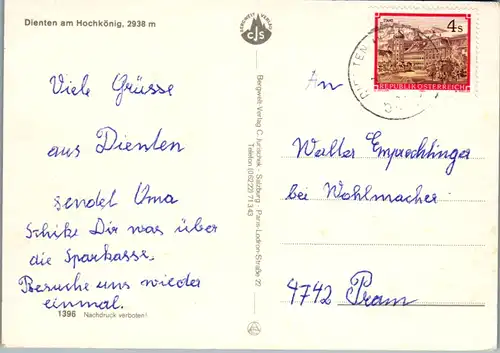 Dienten am Hochkönig, 2938 m
Viele Grüsse
aus Dienten
sendet Oma
Schike Dir was über
die Sparkasse.
Besuche uns wieder
einmal.
1396 Nachdruck verboten!
BERGWELT VERLAG
CJS
Bergwelt-Verlag C. Jurischek - Salzburg - Paris-Lodron-Straße 22
Telefon (06222) 71 3 43
4 S
REPUBLIK ÖSTERREICH
DIENTEN
An
Walter Emprechtinger
bei Wohlmacher
4742 Pram